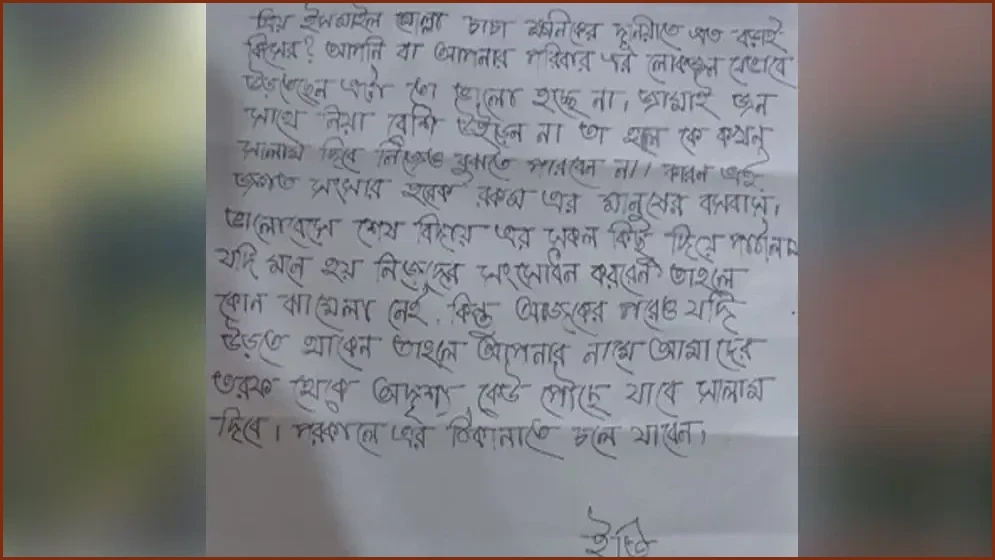 প্রিয় ইসমাইল মোল্লা চাচা ক্ষনিকের দুনিয়াতে এত বড়াই
কিসের? আপনি বা আপনার পরিবার এর লোকজন যেভাবে
উড়তেছেন এটা তো ভালো হচ্ছে না। জামাই জন
সাথে নিয়া বেশি উইড়েন না তা হলে কে কখন
সালাম দিবে নিজেও বুঝতে পারবেন না। কারন এই
জগত সংসার হরেক রকম এর মানুষের বসবাস।
ভালোবেসে শেষ বিদায় এর সকল কিছু দিয়ে পাঠালাম
যদি মনে হয় নিজেদের সংসোধন করবেন তাহলে
কোন ঝামেলা নেই. কিন্তু আজকের পরেও যদি
উড়তে থাকেন তাহলে আপনার নামে আমাদের
তরফ থেকে অদৃশ্য কেউ পৌছে যাবে সালাম
দিবে। পরকালে এর ঠিকানাতে চলে যাবেন।
ইতি